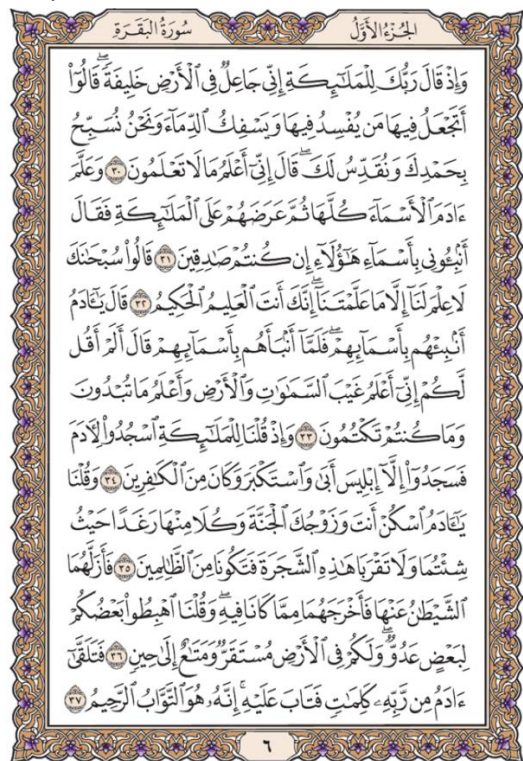 الجُزْءُ الأَوَّلُ
سُورَةُ البَقَرَةِ
وَإِذۡ قَالَ رَبُّكَ لِلۡمَلَٰٓئِكَةِ إِنِّي جَاعِلٞ فِي ٱلۡأَرۡضِ خَلِيفَةٗۖ قَالُوٓاْ
أَتَجۡعَلُ فِيهَا مَن يُفۡسِدُ فِيهَا وَيَسۡفِكُ ٱلدِّمَآءَ وَنَحۡنُ نُسَبِّحُ
بِحَمۡدِكَ وَنُقَدِّسُ لَكَۖ قَالَ إِنِّيٓ أَعۡلَمُ مَا لَا تَعۡلَمُونَ ٣٠ وَعَلَّمَ
ءَادَمَ ٱلۡأَسۡمَآءَ كُلَّهَا ثُمَّ عَرَضَهُمۡ عَلَى ٱلۡمَلَٰٓئِكَةِ فَقَالَ
أَنۢبِـُٔونِي بِأَسۡمَآءِ هَٰٓؤُلَآءِ إِن كُنتُمۡ صَٰدِقِينَ ٣١ قَالُواْ سُبۡحَٰنَكَ
لَا عِلۡمَ لَنَآ إِلَّا مَا عَلَّمۡتَنَآۖ إِنَّكَ أَنتَ ٱلۡعَلِيمُ ٱلۡحَكِيمُ ٣٢ قَالَ يَٰٓـَٔادَمُ
أَنۢبِئۡهُم بِأَسۡمَآئِهِمۡۖ فَلَمَّآ أَنۢبَأَهُم بِأَسۡمَآئِهِمۡ قَالَ أَلَمۡ أَقُل
لَّكُمۡ إِنِّيٓ أَعۡلَمُ غَيۡبَ ٱلسَّمَٰوَٰتِ وَٱلۡأَرۡضِ وَأَعۡلَمُ مَا تُبۡدُونَ
وَمَا كُنتُمۡ تَكۡتُمُونَ ٣٣ وَإِذۡ قُلۡنَا لِلۡمَلَٰٓئِكَةِ ٱسۡجُدُواْ لِأٓدَمَ
فَسَجَدُوٓاْ إِلَّآ إِبۡلِيسَ أَبَىٰ وَٱسۡتَكۡبَرَ وَكَانَ مِنَ ٱلۡكَٰفِرِينَ ٣٤ وَقُلۡنَا
يَٰٓـَٔادَمُ ٱسۡكُنۡ أَنتَ وَزَوۡجُكَ ٱلۡجَنَّةَ وَكُلَا مِنۡهَا رَغَدًا حَيۡثُ
شِئۡتُمَا وَلَا تَقۡرَبَا هَٰذِهِ ٱلشَّجَرَةَ فَتَكُونَا مِنَ ٱلظَّٰلِمِينَ ٣٥ فَأَزَلَّهُمَا
ٱلشَّيۡطَٰنُ عَنۡهَا فَأَخۡرَجَهُمَا مِمَّا كَانَا فِيهِۖ وَقُلۡنَا ٱهۡبِطُواْ بَعۡضُكُمۡ
لِبَعۡضٍ عَدُوّٞۖ وَلَكُمۡ فِي ٱلۡأَرۡضِ مُسۡتَقَرّٞ وَمَتَٰعٌ إِلَىٰ حِينٖ ٣٦ فَتَلَقَّىٰٓ
ءَادَمُ مِن رَّبِّهِۦ كَلِمَٰتٖ فَتَابَ عَلَيۡهِۚ إِنَّهُۥ هُوَ ٱلتَّوَّابُ ٱلرَّحِيمُ ٣٧
٦